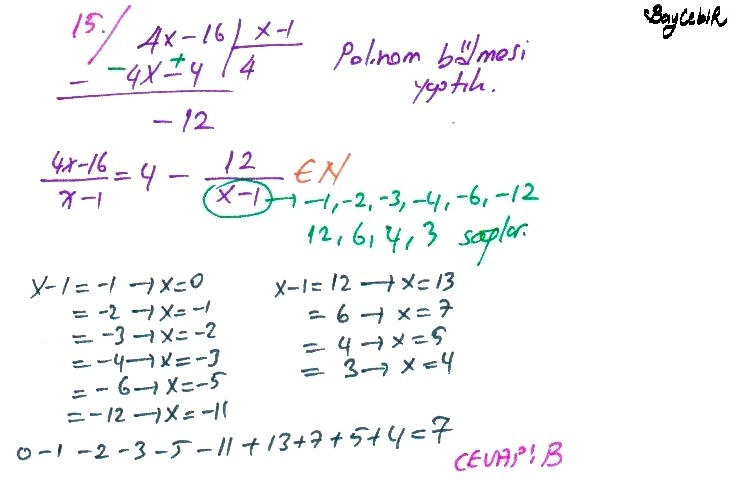 BayCebiR
15./ 4x-16 | x-1
- -4x±4 4
-12
Polinom bölmesi
yaptık.
4x-16/x-1 = 4 - 12/x-1 ∈N
x-1 → -1, -2, -3, -4, -6, -12
12, 6, 4, 3 sağlar.
x-1 = -1 → x=0
= -2 → x=-1
= -3 → x=-2
= -4 → x=-3
= -6 → x=-5
= -12 → x=-11
x-1 = 12 → x=13
= 6 → x=7
= 4 → x=5
= 3 → x=4
0-1-2-3-5-11+13+7+5+4=7
CEVAP: B